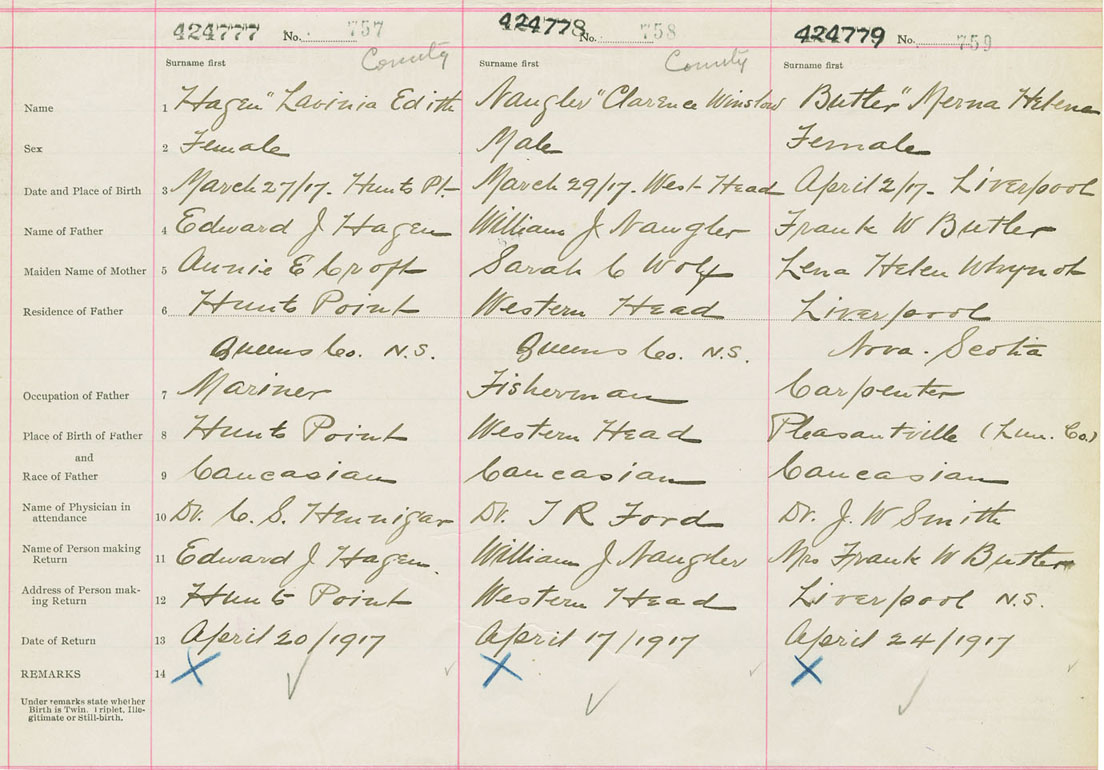 424777 No. 757 424778 No. 758 424779 No. 759
County County
Surname first Surname first Surname first
Name 1 Hagen" Lavinia Edith Naugler" Clarence Winslow Butler" Merna Helena
Sex 2 Female Male Female
Date and Place of Birth 3 March 27/17. Hunts Pt. March 29/17. West Head April 2/17. Liverpool
Name of Father 4 Edward J Hagen William J Naugler Frank W Butler
Maiden Name of Mother 5 Annie E Croft Sarah C Wolf Lena Helen Whynot
Residence of Father 6 Hunts Point Western Head Liverpool
Queens Co. N.S. Queens Co. N.S. Nova. Scotia
Occupation of Father 7 Mariner Fisherman Carpenter
Place of Birth of Father 8 Hunts Point Western Head Pleasantville (Lun. Co.)
and
Race of Father 9 Caucasian Caucasian Caucasian
Name of Physician in
attendance 10 Dr. C. S. Hennigar Dr. T R Ford Dr. J. W Smith
Name of Person making
Return 11 Edward J Hagen. William J Naugler Mrs Frank W Butler
Address of Person mak-
ing Return 12 Hunts Point Western Head Liverpool N.S.
Date of Return 13 April 20/1917 April 17/1917 April 24/1917
REMARKS 14
Under remarks state whether
Birth is Twin, Triplet, Ille-
gitimate or Still-birth.